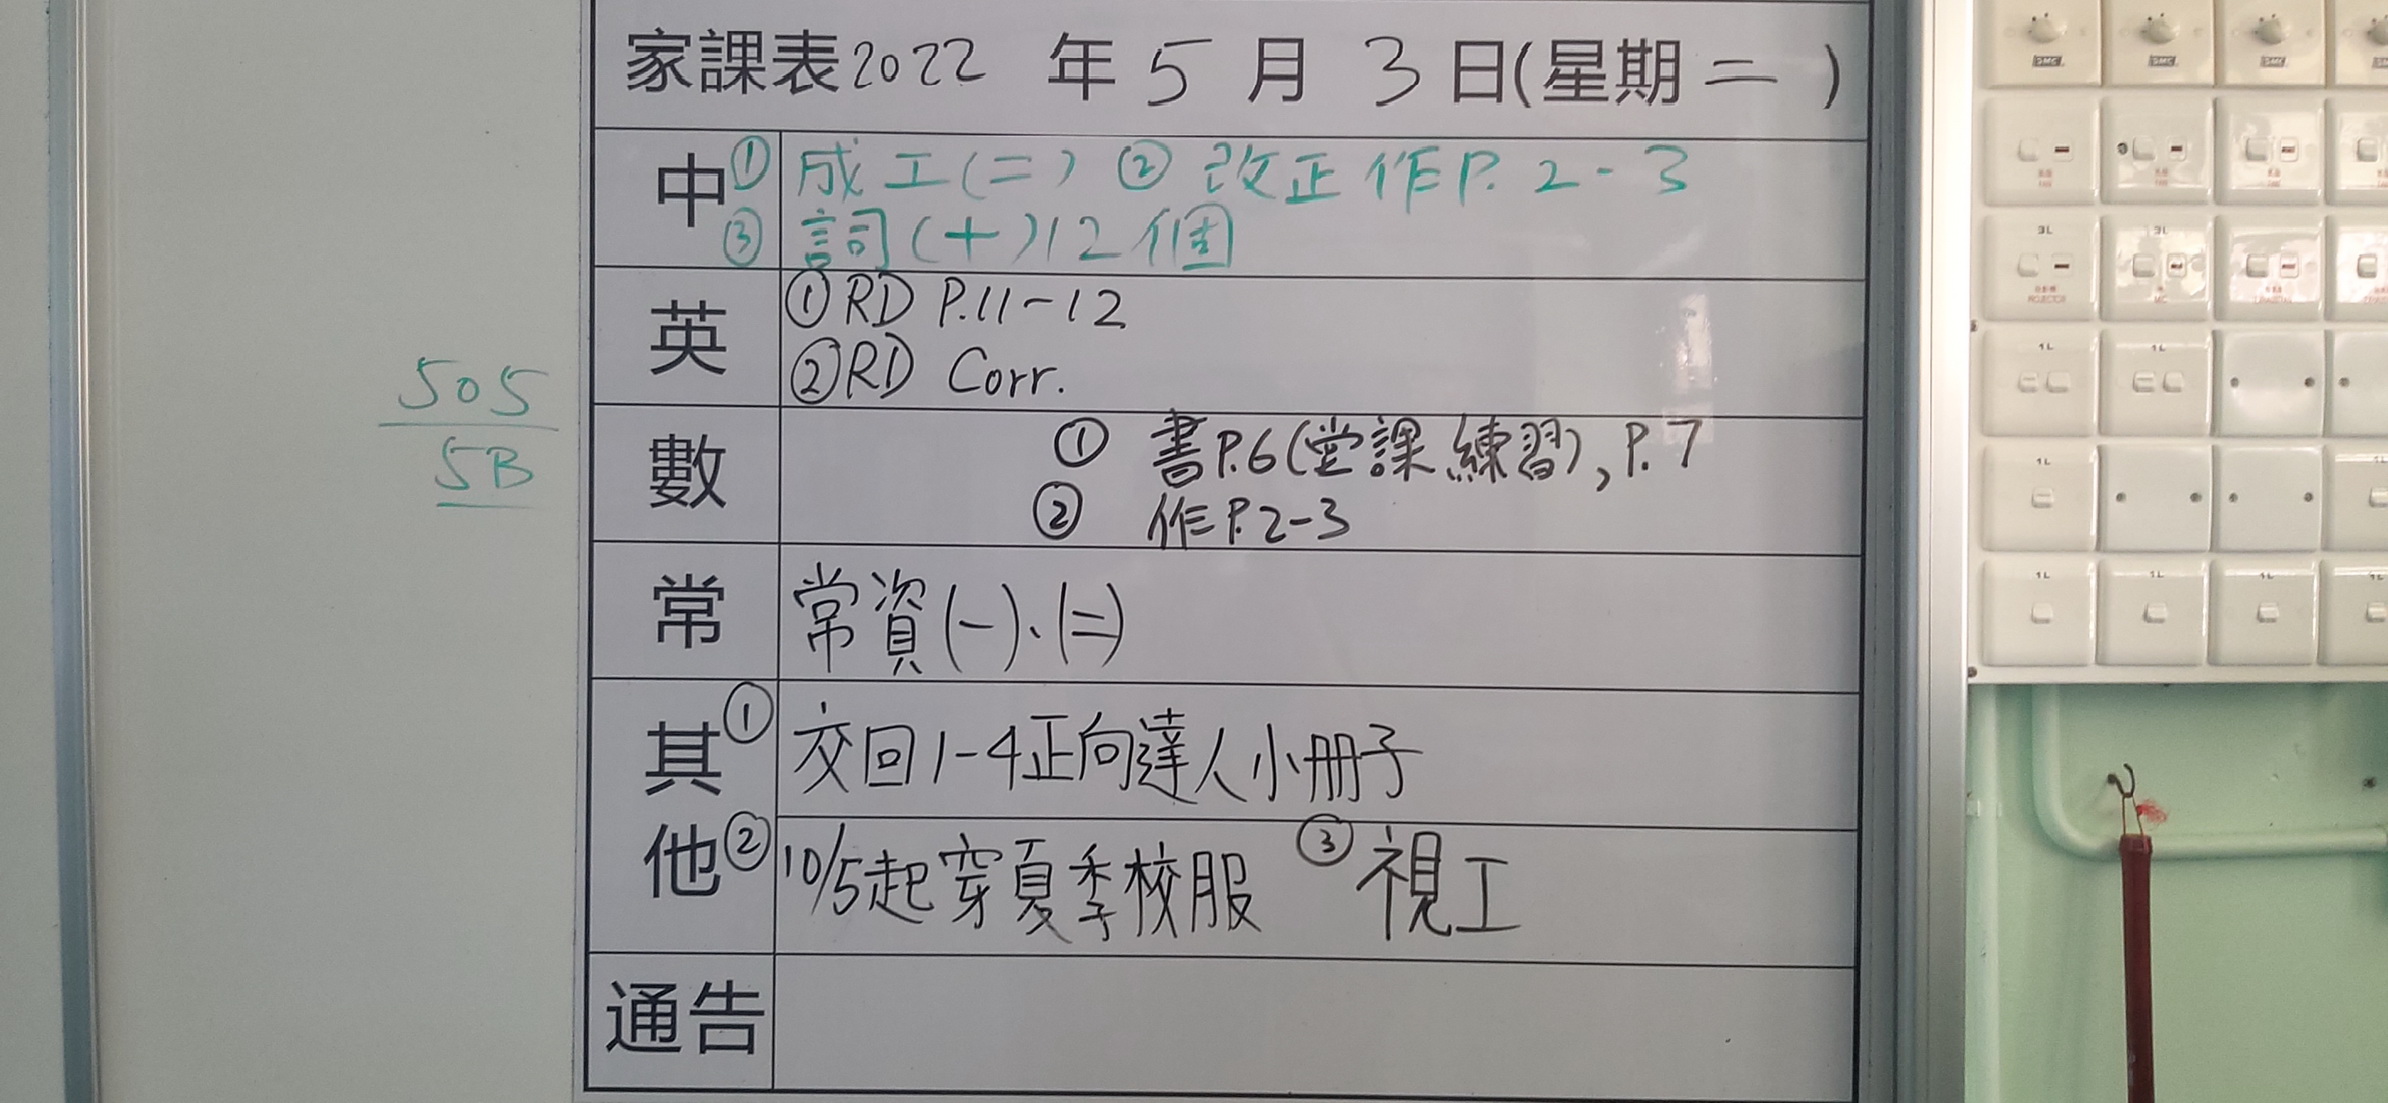 家課表2022 年 5 月 3 日(星期二)
中 ① 成工(二) ② 改正作P.2-3
③ 詞(十)12個
英 ①RD P.11-12
②RD Corr.
505
5B
數 ① 書P.6(堂課練習), P.7
② 作P.2-3
常 常資(一)、(二)
其他 ① 交回1-4正向達人小冊子
② 10/5起穿夏季校服 ③ 視工
通告